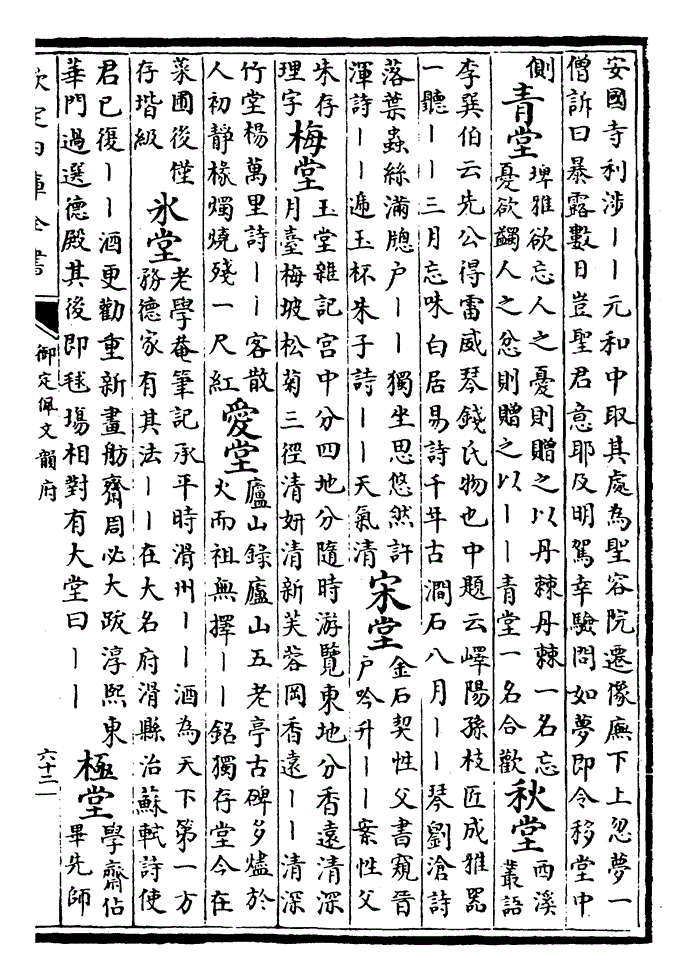 安國寺利涉――元和中取其處為聖容院遷像廡下上忽夢一
僧訴曰暴露數日豈聖君意耶及明駕幸驗問如夢即令移堂中
側
青堂
埤雅欲忘人之憂則贈之以丹棘丹棘一名忘
憂欲蠲人之忿則贈之以――青堂一名合歡
秋堂
西溪
叢語
李巽伯云先公得雷威琴錢氏物也中題云嶧陽孫枝匠成雅器
一聽――三月忘味白居易詩千年古澗石八月――琴劉滄詩
落葉蟲絲滿牕户――獨坐思悠然許
渾詩――遍玉杯朱子詩――天氣清
宋堂
金石契性父書窺晉
户吟升――案性父
朱存
理字
梅堂
玉堂雜記宫中分四地分隨時游覽東地分香遠清深
月臺梅坡松菊三徑清妍清新芙蓉岡香遠――清深
竹堂楊萬里詩――客散
人初静椽燭燒殘一尺紅
愛堂
廬山錄廬山五老亭古碑多燼於
火而祖無擇――銘獨存堂今在
菜圃後僅
存堦級
氷堂
老學菴筆記承平時滑州――酒為天下第一方
務德家有其法――在大名府滑縣治蘇軾詩使
君已復――酒更勸重新畫舫齋周必大跋淳熙東
華門過選德殿其後即毬場相對有大堂曰――
極堂
學齋佔
畢先師
欽定四庫全書
御定佩文韻府
六十二